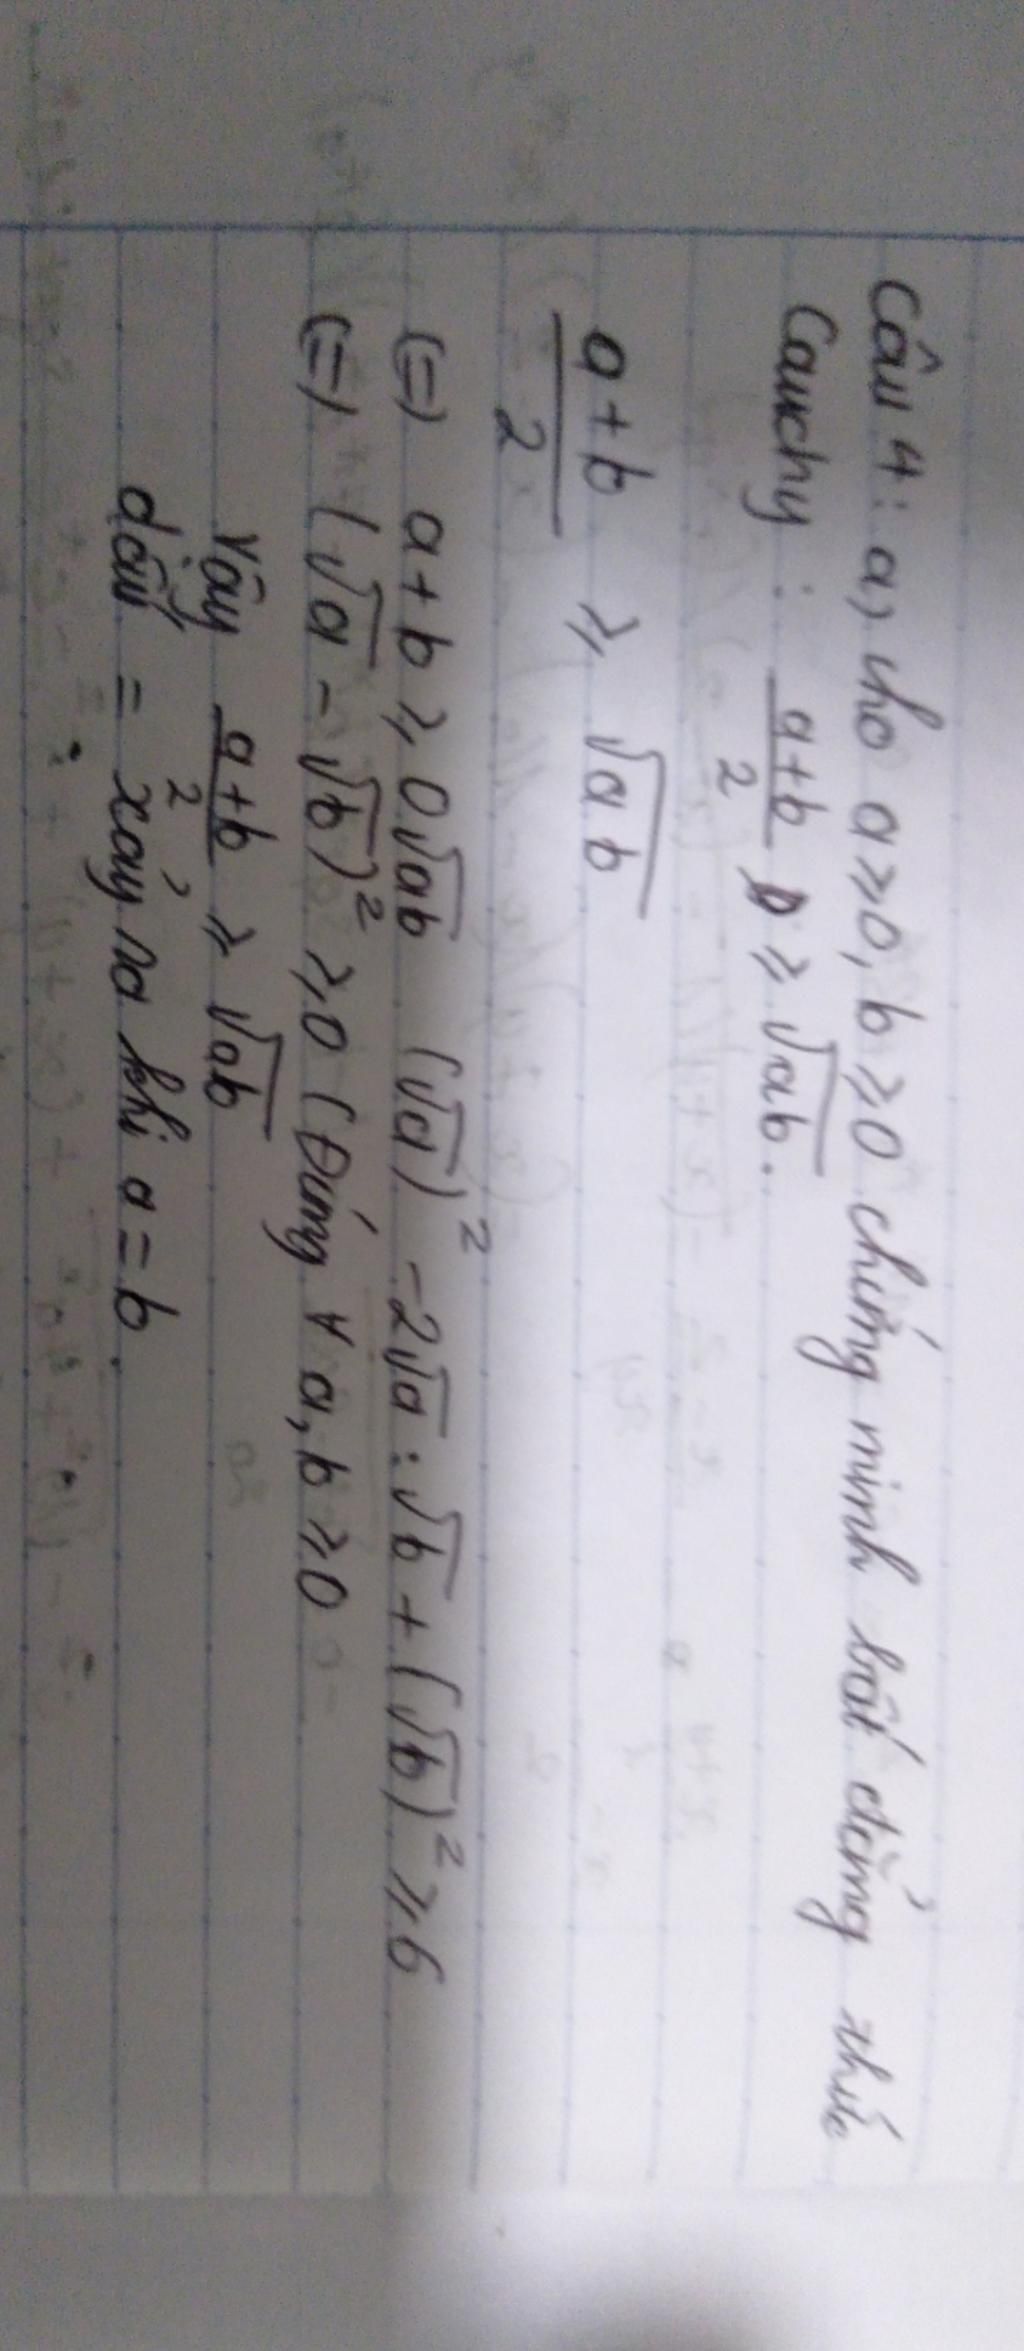 Câu 4: a, cho a ≥ 0, b ≥ 0 chứng minh bất đẳng thức
Cauchy : a+b/2 ≥ √ab.
a+b/2 ≥ √ab
(=) a+b ≥ 0√ab (√a)² -2√a . √b + (√b)² ≥ 6
(=) (√a - √b)² ≥ 0 (Đúng ∀ a, b ≥ 0
Vậy a+b/2 ≥ √ab
dấu = xảy ra khi a = b.